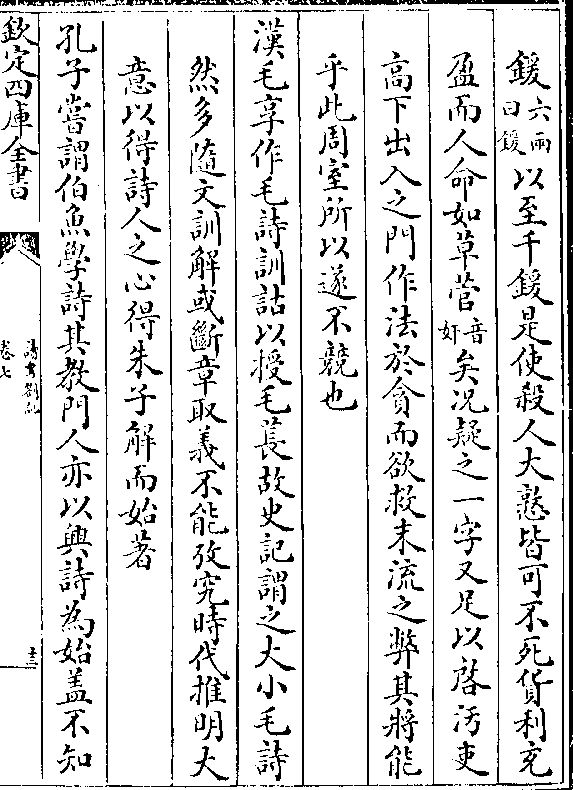 鍰六兩曰鍰以至千鍰是使殺人大憝皆可不死貨利充
盈而人命如草菅音奸矣况疑之一字又足以啓汚吏
高下出入之門作法於貪而欲救末流之弊其將能
乎此周室所以遂不競也
漢毛享作毛詩訓詁以授毛萇故史記謂之大小毛詩
然多隨文訓解或斷章取義不能攷究時代推明大
意以得詩人之心得朱子解而始著
孔子嘗謂伯魚學詩其敎門人亦以興詩為始盖不知
欽定四庫全書
讀書劄記
卷七